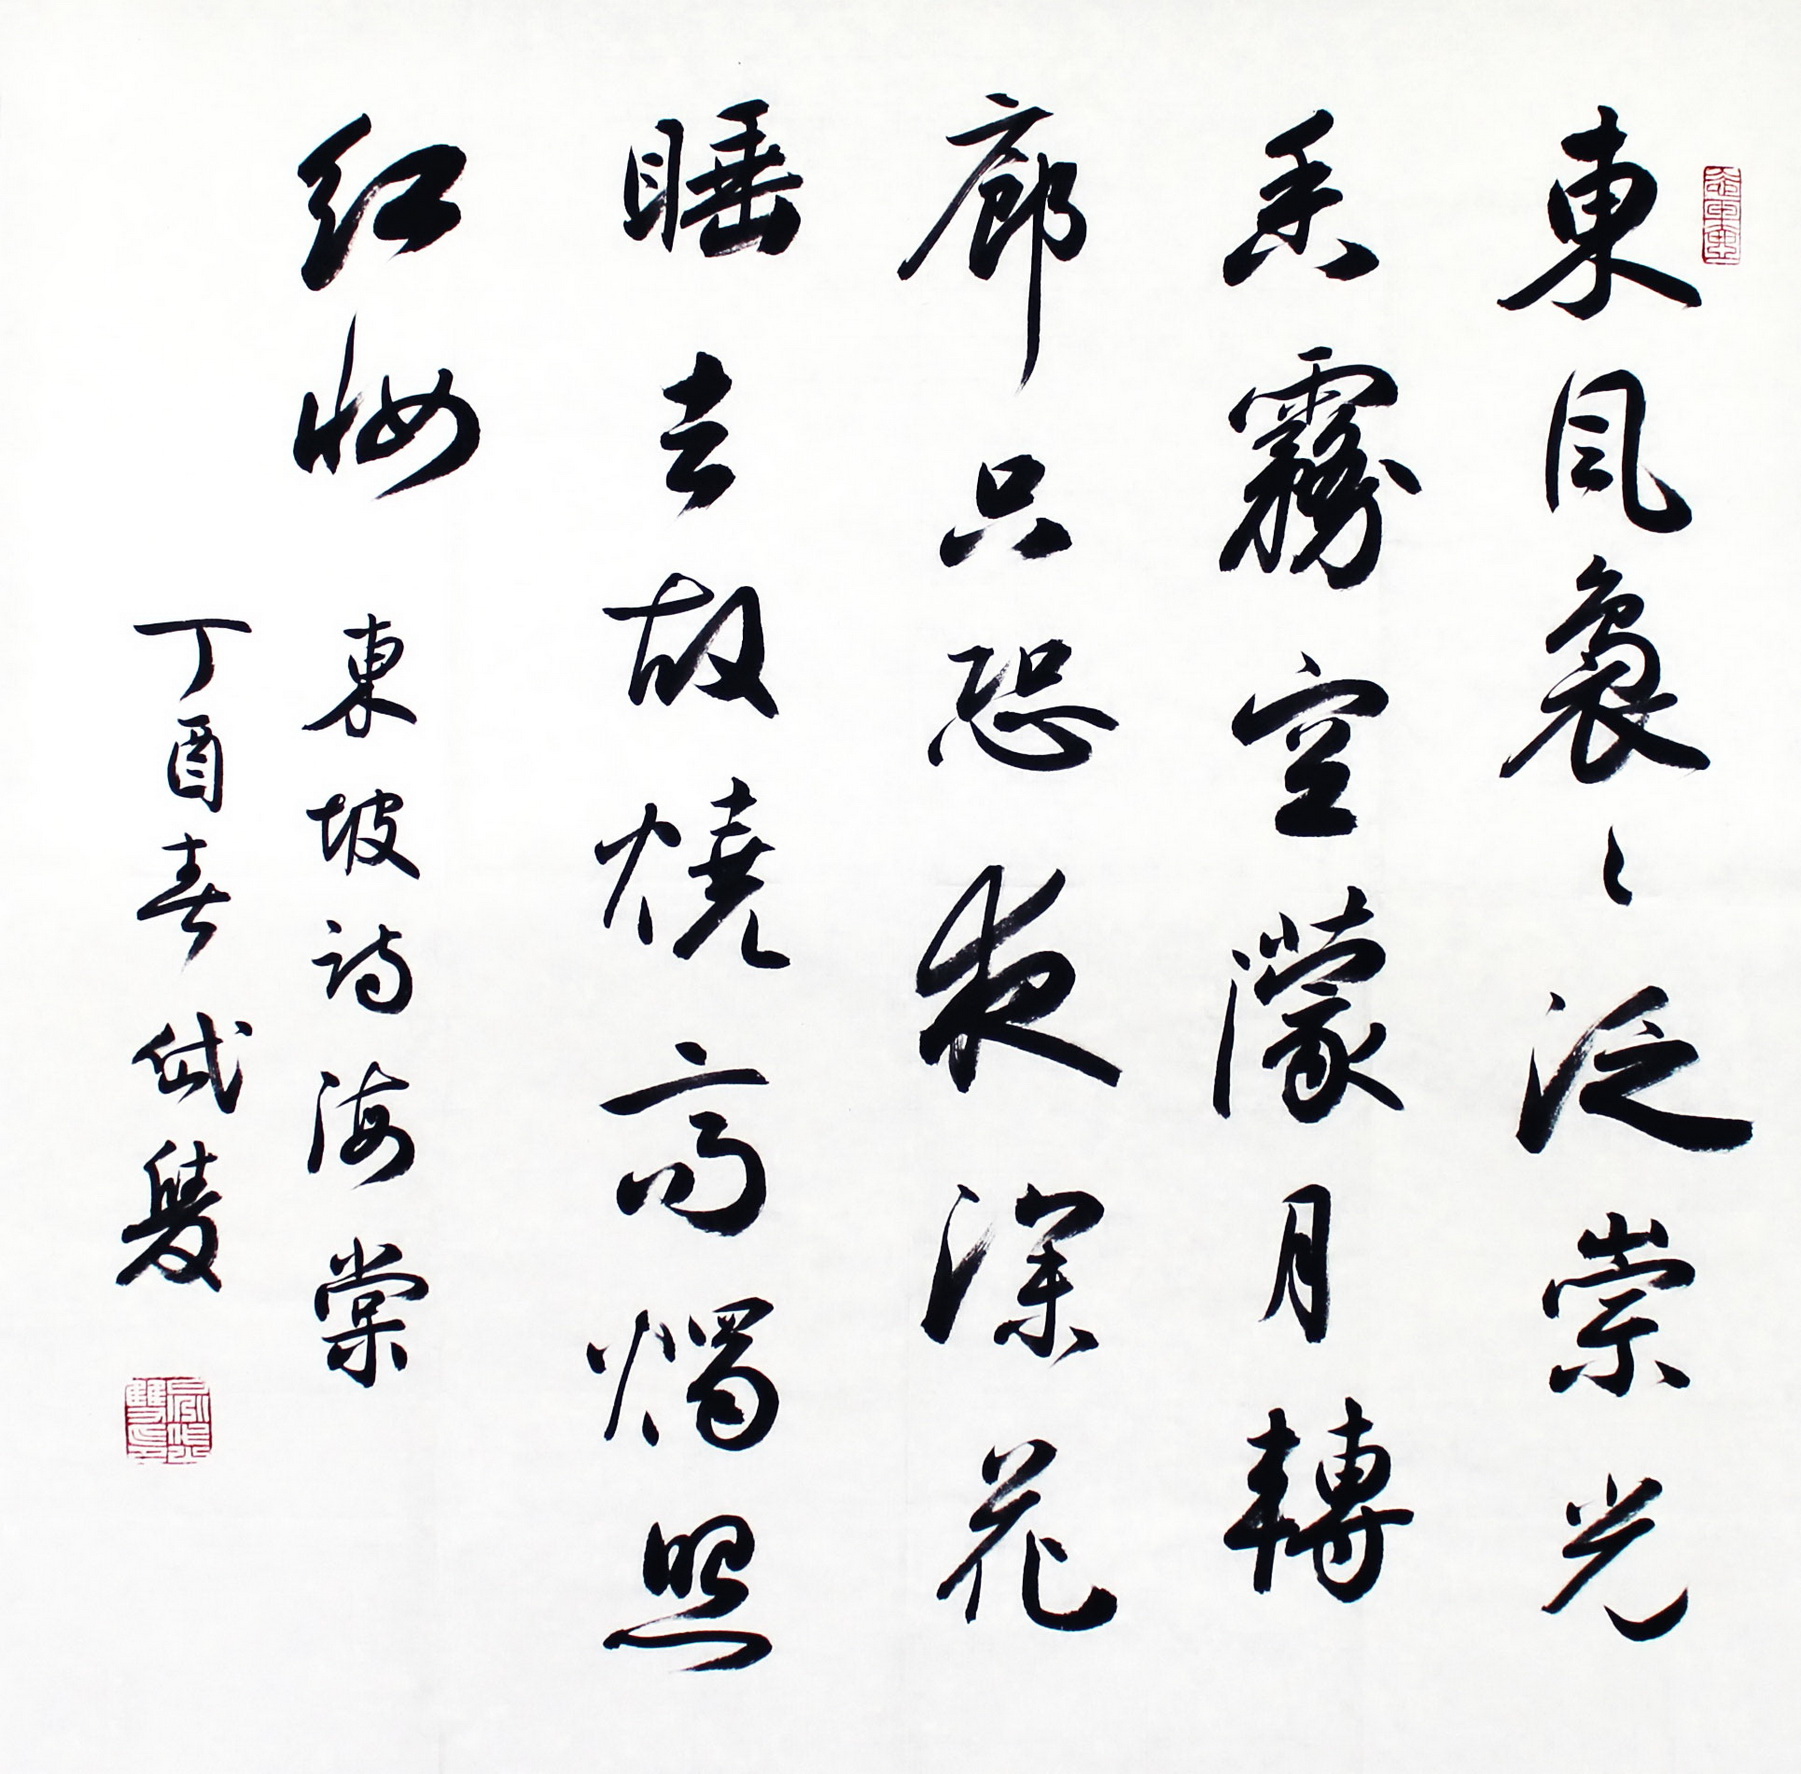 東風裊〻泛崇光
香霧空濛月轉
廊只恐夜深花
睡去故燒高燭照
紅妝
東坡詩海棠
丁酉春岱